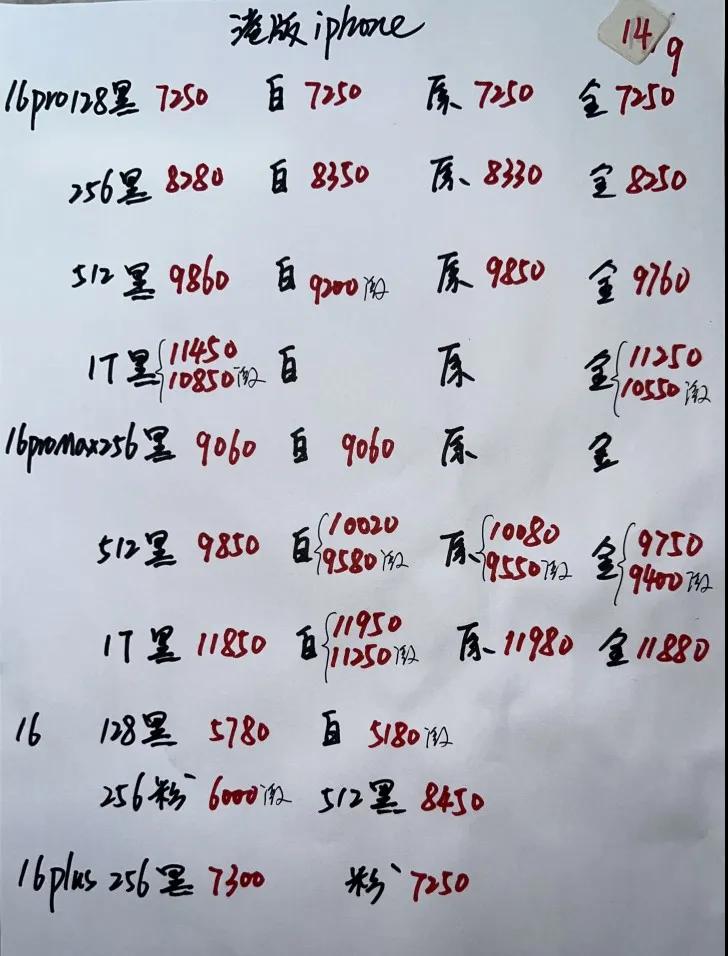 港版iphone
14/9
16pro128黑 7250 白 7250 原 7250 金 7250
256黑 8280 白 8350 原 8330 金 8250
512黑 9860 白 9200激 原 9850 金 9760
1T黑 11450 10850激 白 原 金 11250 10550激
16promax256黑 9060 白 9060 原 金
512黑 9850 白 10020 9580激 原 10080 9550激 金 9750 9400激
1T黑 11850 白 11950 11250激 原 11980 金 11880
16 128黑 5780 白 5180激
256粉 6000激 512黑 8450
16plus 256黑 7300 粉 7250